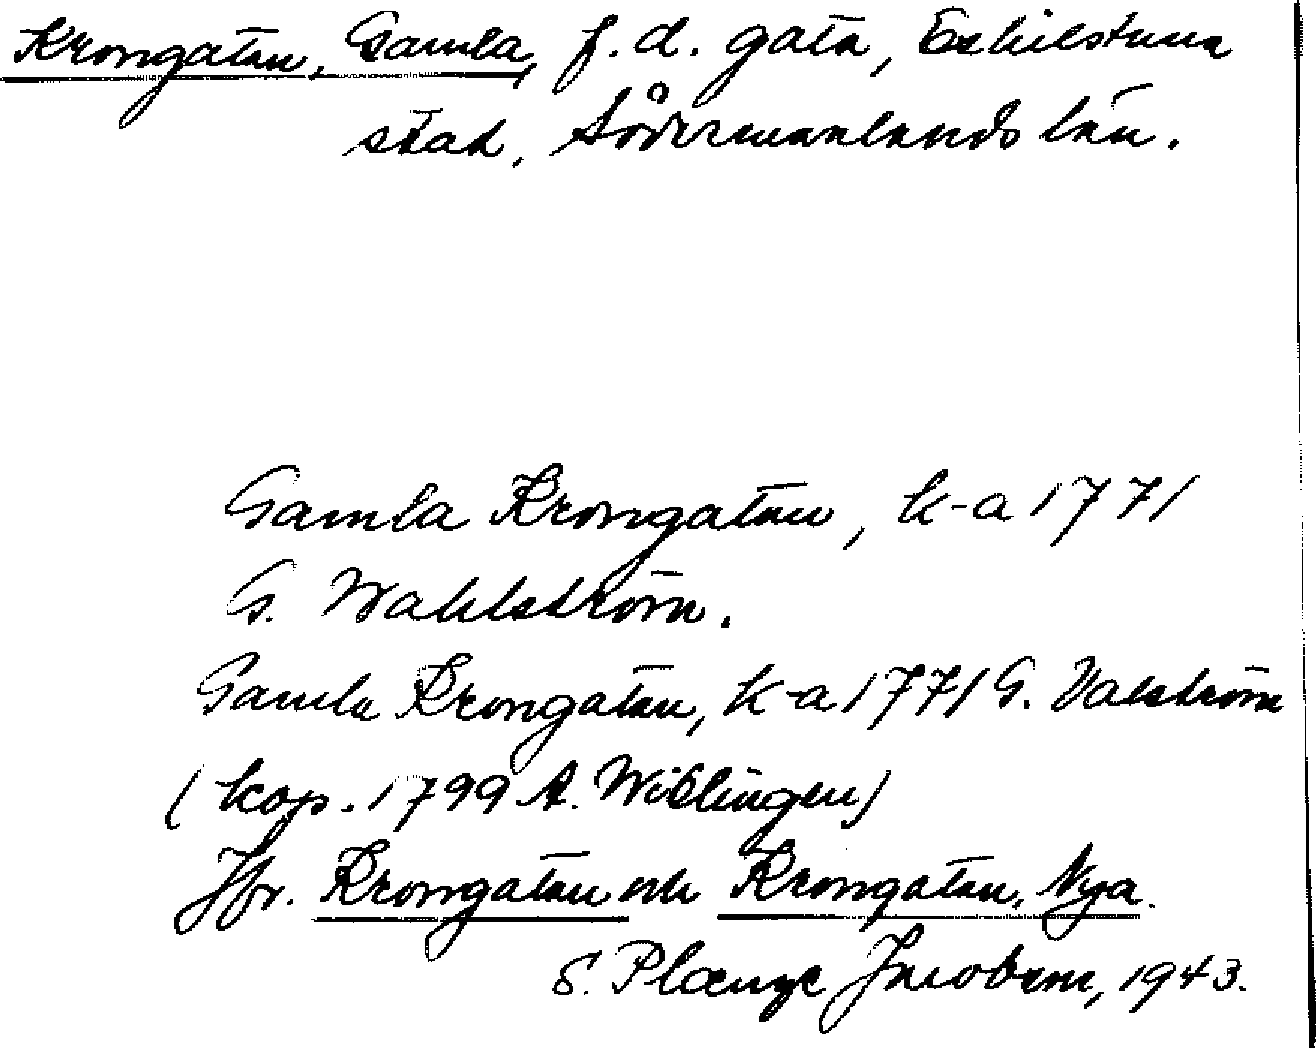 Krongatan, Gamla, f. d. gata, Eskilstuna
stad, Södermanlands län.
Gamla Krongatan, k-a 1771
G. Wahlström.
Gamla Krongatan, k-a 1771 G. Valström
(kop. 1799 A. Wiblingen)
Jfr. Krongatan och Krongatan, Nya.
S. Plænge Jacobson, 1943.